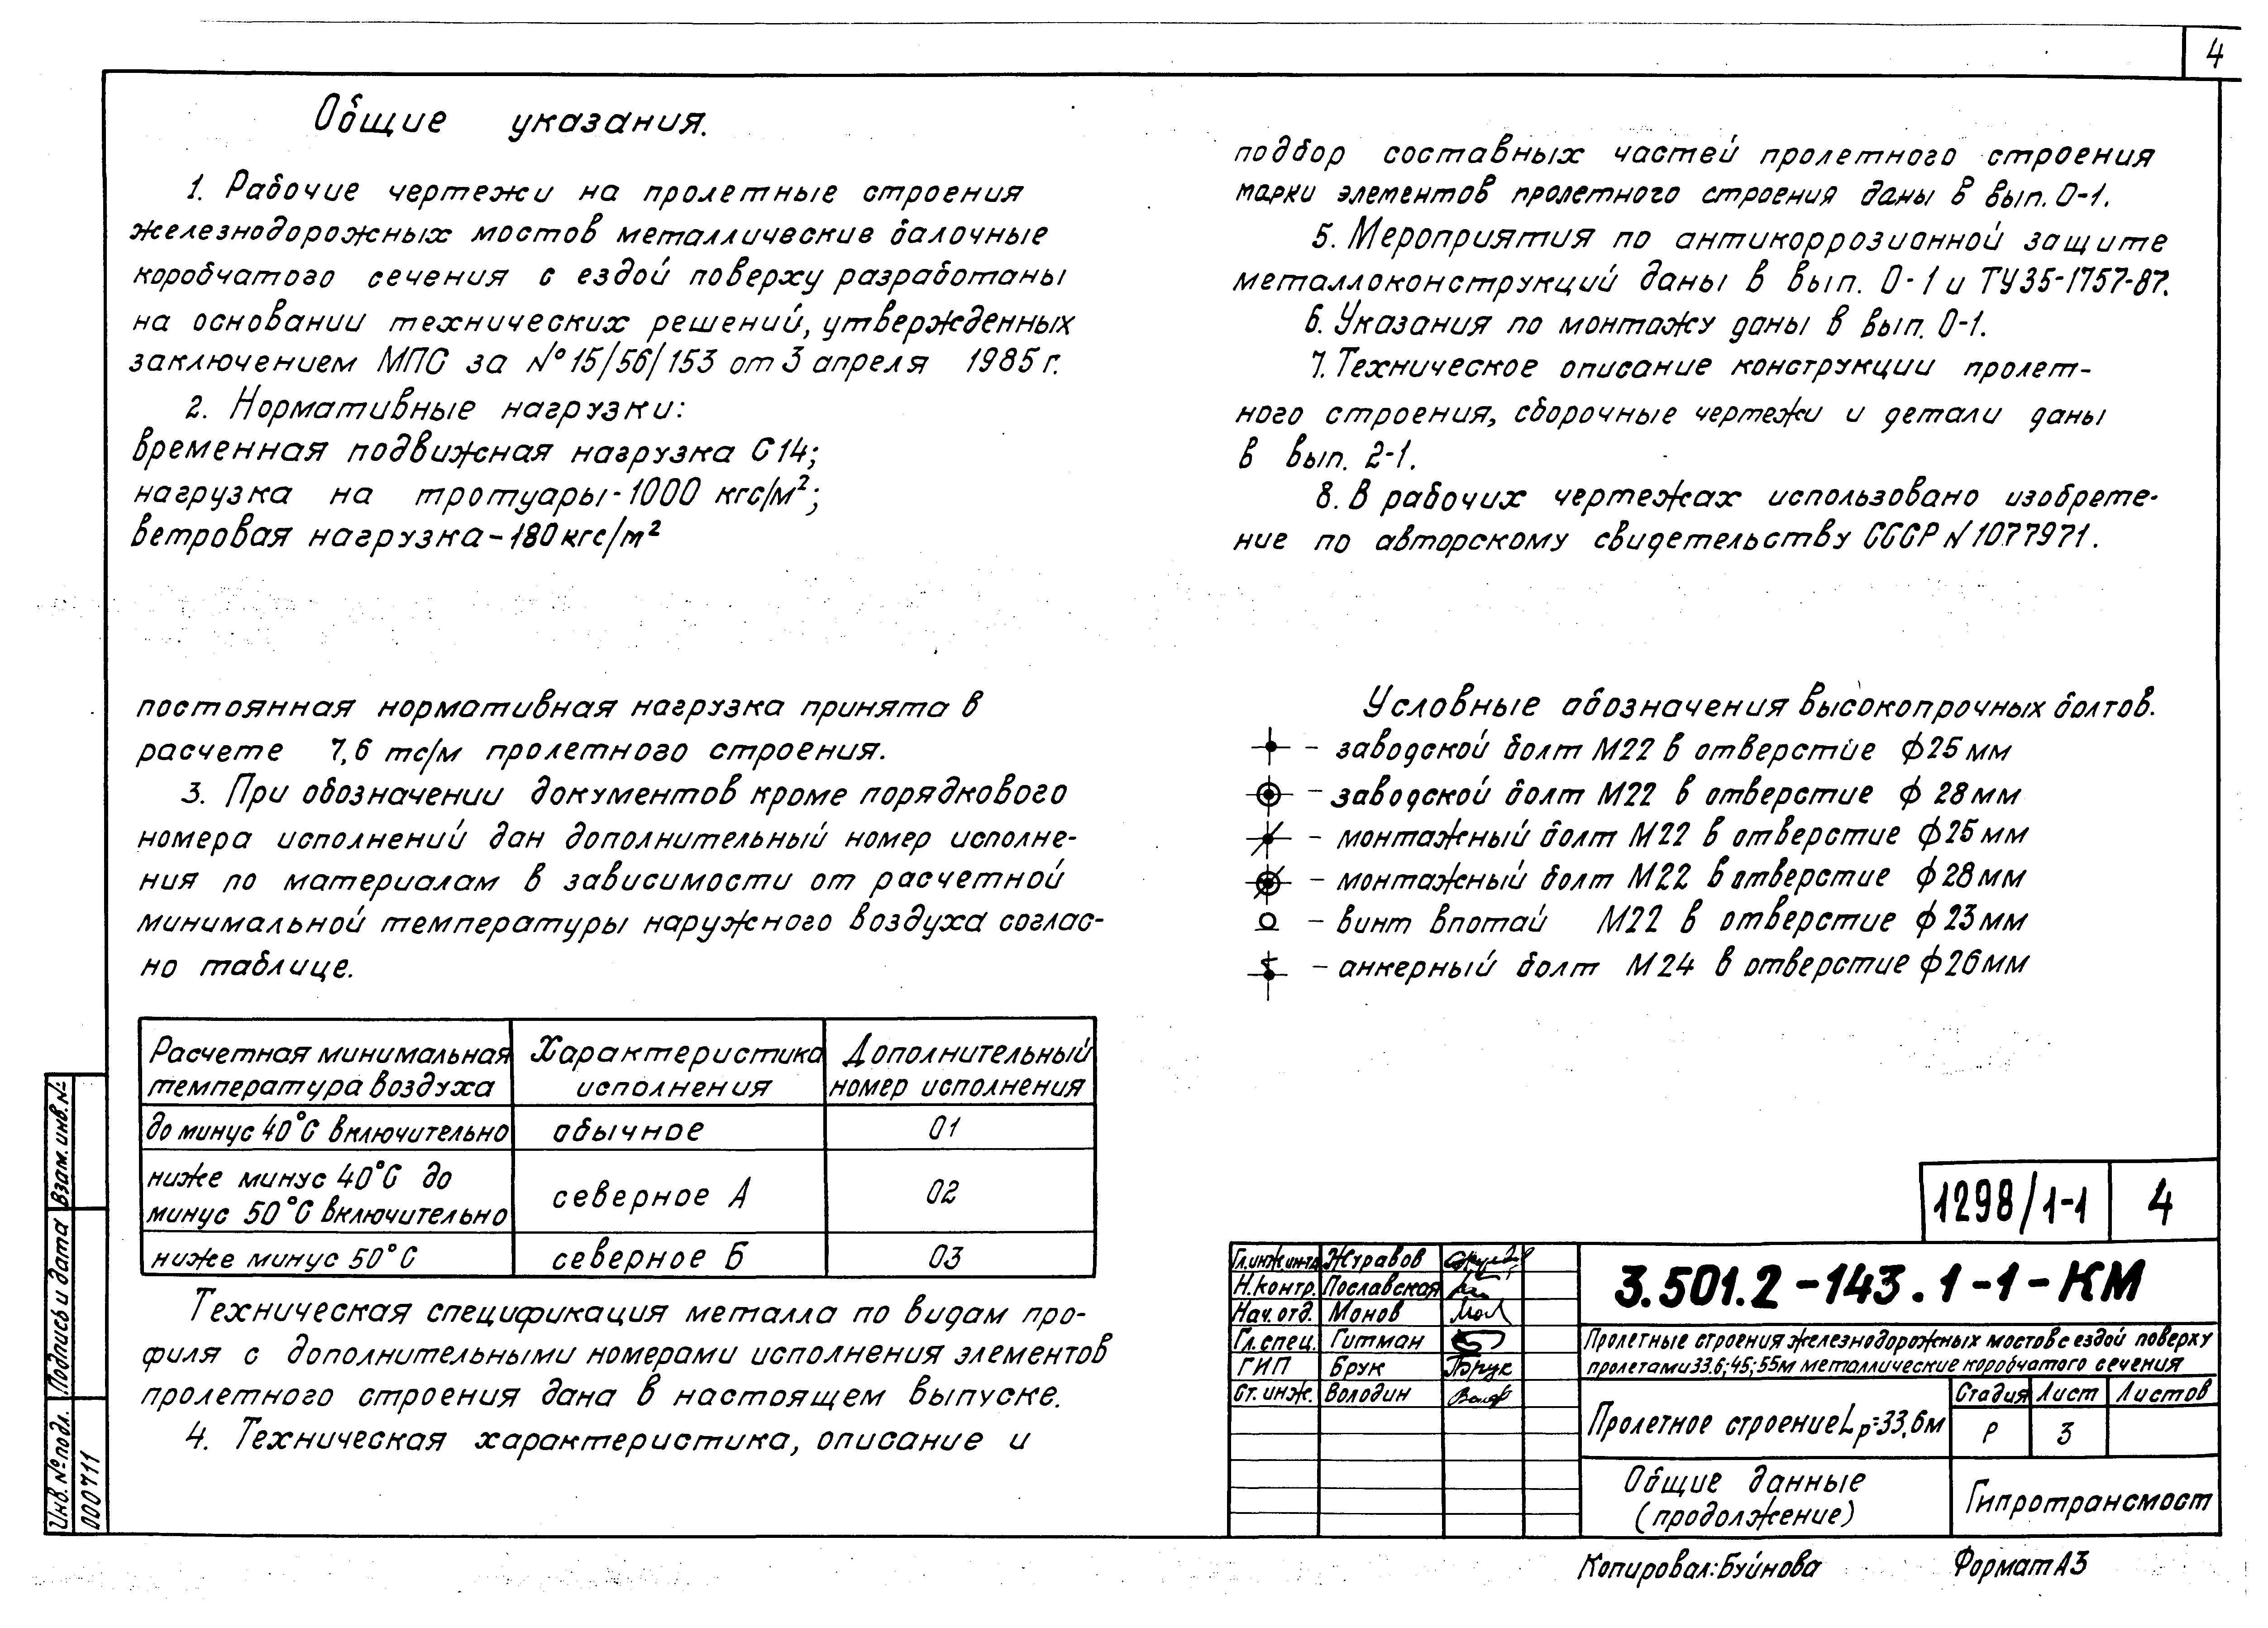 4
Общие указания.
1. Рабочие чертежи на пролетные строения
железнодорожных мостов металлические балочные
коробчатого сечения с ездой поверху разработаны
на основании технических решений, утвержденных
заключением МПС за №15/56/153 от 3 апреля 1985г.
2. Нормативные нагрузки:
временная подвижная нагрузка С14;
нагрузка на тротуары-1000 кгс/м²;
ветровая нагрузка-180кгс/м²
постоянная нормативная нагрузка принята в
расчете 7,6 тс/м пролетного строения.
3. При обозначении документов кроме порядкового
номера исполнений дан дополнительный номер исполне-
ния по материалам в зависимости от расчетной
минимальной температуры наружного воздуха соглас-
но таблице.
Расчетная минимальная температура воздуха
Характеристика исполнения
Дополнительный номер исполнения
до минус 40°С включительно обычное 01
ниже минус 40°С до
минус 50°С включительно северное А 02
ниже минус 50°С северное Б 03
Техническая спецификация металла по видам про-
филя с дополнительными номерами исполнения элементов
пролетного строения дана в настоящем выпуске.
4. Техническая характеристика, описание и
подбор составных частей пролетного строения
марки элементов пролетного строения даны в вып. 0-1.
5. Мероприятия по антикоррозионной защите
металлоконструкций даны в вып. 0-1 и ТУ35-1757-87.
6. Указания по монтажу даны в вып. 0-1.
7. Техническое описание конструкции пролет-
ного строения, сборочные чертежи и детали даны
в вып. 2-1.
8. В рабочих чертежах использовано изобрете-
ние по авторскому свидетельству СССР N1077971.
Условные обозначения высокопрочных болтов.
- заводской болт М22 в отверстие ф25мм
- заводской болт М22 в отверстие ф 28мм
- монтажный болт М22 в отверстие ф25мм
- монтажный болт М22 в отверстие ф28мм
- винт впотай М22 в отверстие ф23мм
- анкерный болт М24 в отверстие ф26мм
1298/1-1 4
Гл.инж.ин-та Журавов
Н.контр. Пославская
Нач.отд. Монов
Гл.спец. Гитман
ГИП Брук
Ст.инж. Володин
3.501.2-143.1-1-КМ
Пролетные строения железнодорожных мостов с ездой поверху
пролетами 33.6; 45; 55м металлические коробчатого сечения
Пролетное строение Lр=33,6м
Стадия Лист Листов
Р 3
Общие данные
(продолжение)
Гипротрансмост
Копировал: Буйнова Формат А3
Взам. инв. №
Подпись и дата
Инв. № подл.
000711